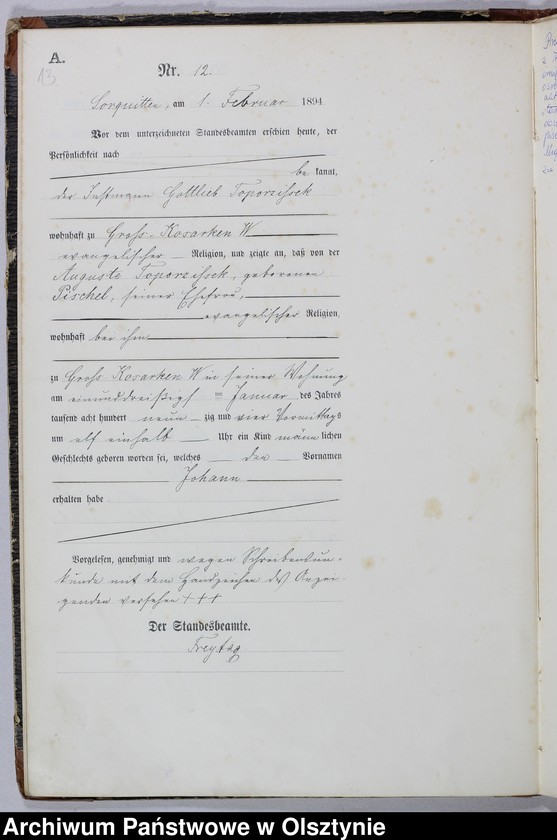 A.
13
Nr. 12.
Sorquitten, am 1. Februar 1894
Vor dem unterzeichneten Standesbeamten erschien heute, der
Persönlichkeit nach
be kannt,
der Instmann Gottlieb Toporzissek
wohnhaft zu Groß-Kosarken W
evangelischer Religion, und zeigte an, daß von der
Auguste Toporzissek, geborenen
Pischel, seiner Ehefrau,
evangelischer Religion,
wohnhaft bei ihm
zu Groß Kosarken W in seiner Wohnung
am einunddreißigsten Januar des Jahres
tausend acht hundert neun zig und vier Vormittags
um elf einhalb Uhr ein Kind männ lichen
Geschlechts geboren worden sei, welches den Vornamen
Johann
erhalten habe
Vorgelesen, genehmigt und wegen Schreibensun-
kunde mit dem Handzeichen des Anzei-
genden versehen +++
Der Standesbeamte.
Freytag
Archiwum Państwowe w Olsztynie